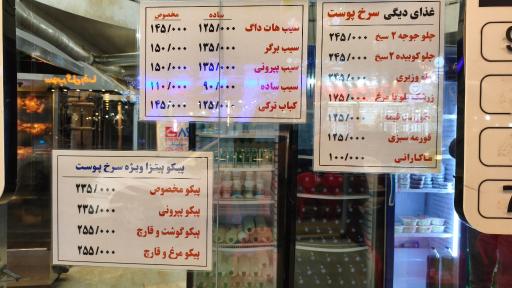 ساده مخصوص
سیب هات داگ ۱۲۵/۰۰۰ ۱۴۵/۰۰۰
سیب برگر ۱۳۵/۰۰۰ ۱۵۰/۰۰۰
سیب پپرونی ۱۳۵/۰۰۰ ۱۵۰/۰۰۰
سیب ساده ۹۰/۰۰۰ ۱۱۰/۰۰۰
کباب ترکی ۱۲۵/۰۰۰ ۱۴۵/۰۰۰
غذای دیگی سرخ پوست
چلو جوجه ۲ سیخ ۲۴۵/۰۰۰
چلو کوبیده ۲ سیخ ۲۴۵/۰۰۰
وزیری ۲۴۵/۰۰۰
زرشک پلو با مرغ ۱۷۵/۰۰۰
قیمه
قورمه سبزی
ماکارانی ۱۰۰/۰۰۰
پیکو پیتزا ویژه سرخ پوست
پیکو مخصوص ۲۳۵/۰۰۰
پیکو پپرونی ۲۳۵/۰۰۰
پیکو گوشت و قارچ ۲۵۵/۰۰۰
پیکو مرغ و قارچ ۲۵۵/۰۰۰